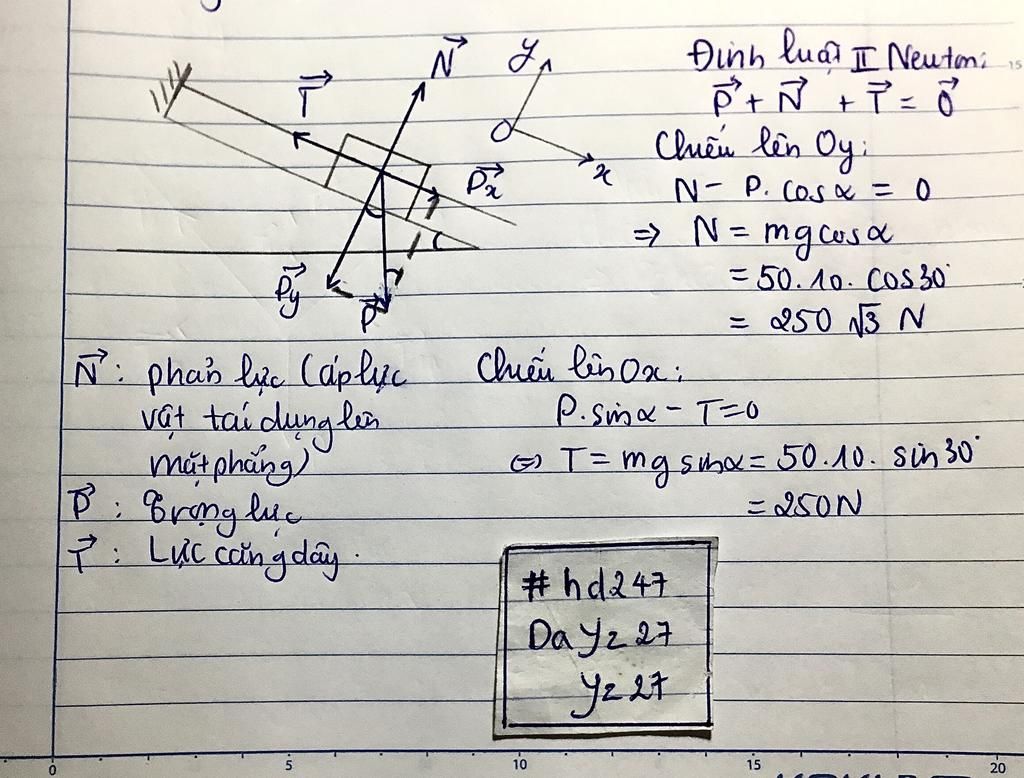 N→
y
T→
O
x
Px→
Py→
P→
Định luật II Newton:
P→ + N→ + T→ = 0→
Chiếu lên Oy:
N - P. cosα = 0
=> N = mgcosα
= 50.10. cos30°
= 250 √3 N
N→: phản lực (áp lực
vật tác dụng lên
mặt phẳng)
P→: Trọng lực
T→: Lực căng dây.
Chiếu lên Ox:
P.sinα - T=0
<=> T = mg sinα = 50.10. sin30°
= 250N
#hd247
Da Yz 27
Yz 27
0 5 10 15 20
15